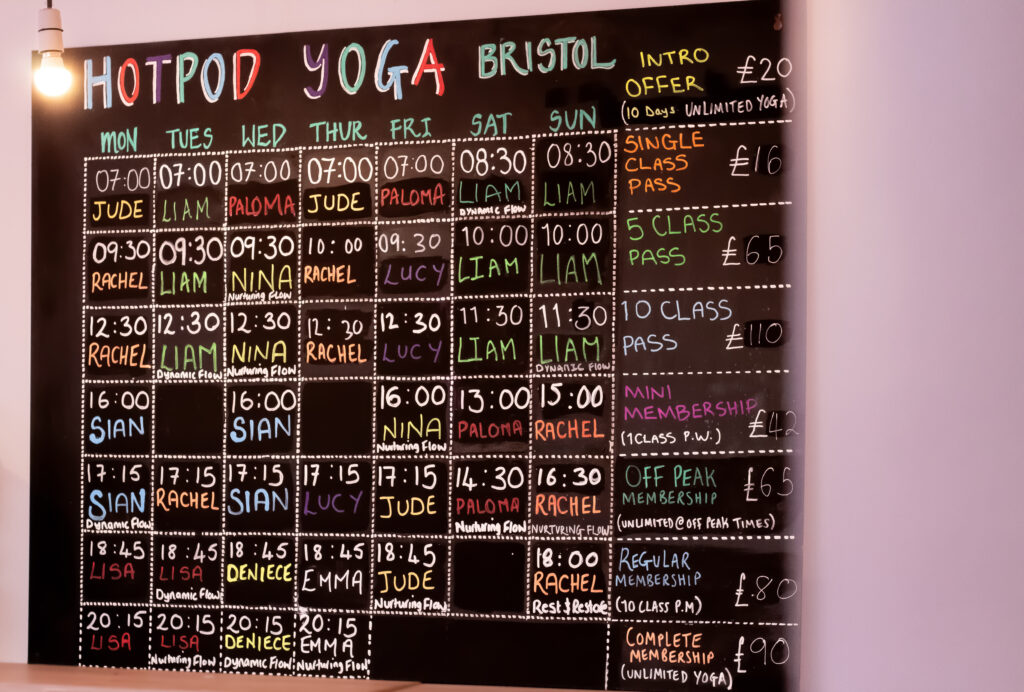 HOTPOD YOGA BRISTOL
MON TUES WED THUR FRI SAT SUN
07:00 07:00 07:00 07:00 07:00 08:30 08:30
JUDE LIAM PALOMA JUDE PALOMA LIAM LIAM
DYNAMIC FLOW
09:30 09:30 09:30 10:00 09:30 10:00 10:00
RACHEL LIAM NINA RACHEL LUCY LIAM LIAM
Nurturing Flow
12:30 12:30 12:30 12:30 12:30 11:30 11:30
RACHEL LIAM NINA RACHEL LUCY LIAM LIAM
Dynamic Flow Nurturing Flow DYNAMIC FLOW
16:00 16:00 16:00 13:00 15:00
SIAN SIAN NINA PALOMA RACHEL
Nurturing Flow
17:15 17:15 17:15 17:15 17:15 14:30 16:30
SIAN RACHEL SIAN LUCY JUDE PALOMA RACHEL
Dynamic Flow Nurturing Flow NURTURING FLOW
18:45 18:45 18:45 18:45 18:45 18:00
LISA LISA DENIECE EMMA JUDE RACHEL
Dynamic Flow Nurturing Flow Rest & Restore
20:15 20:15 20:15 20:15
LISA LISA DENIECE EMMA
Nurturing Flow Dynamic Flow Nurturing Flow
INTRO
OFFER £20
(10 Days UNLIMITED YOGA)
SINGLE
CLASS £16
PASS
5 CLASS
PASS £65
10 CLASS
PASS £110
MINI
MEMBERSHIP £42
(1 CLASS P.W.)
OFF PEAK £65
MEMBERSHIP
(UNLIMITED @ OFF PEAK TIMES)
REGULAR
MEMBERSHIP £80
(10 CLASS P.M)
COMPLETE
MEMBERSHIP £90
(UNLIMITED YOGA)